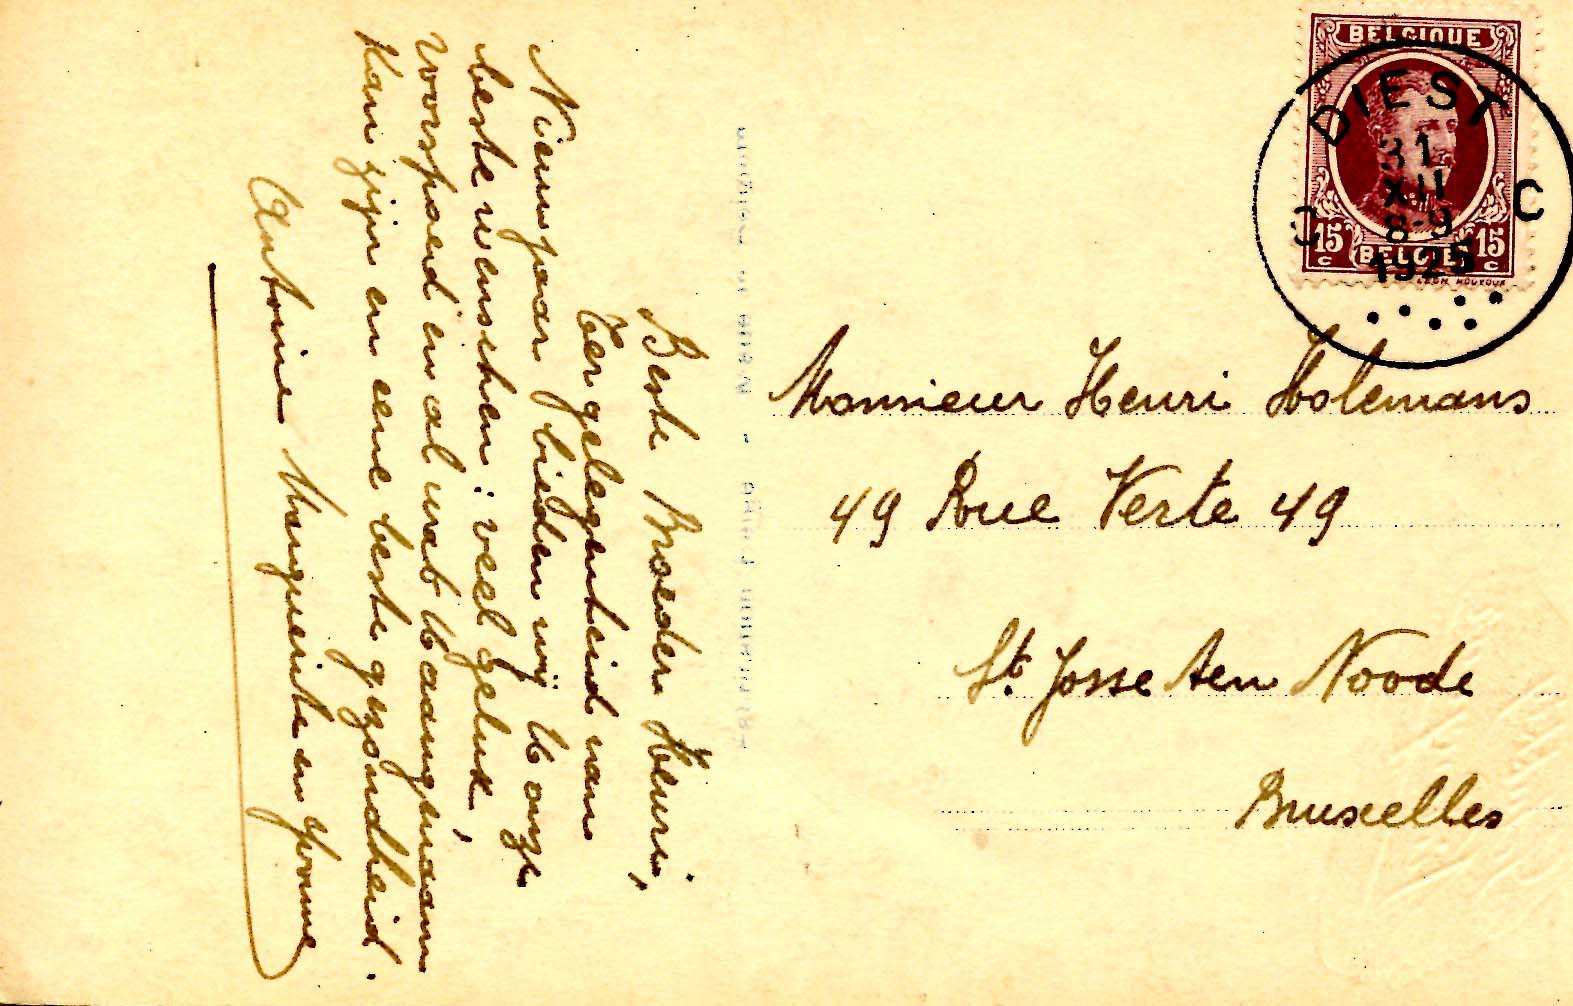 BELGIQUE
DIEST
31
XII
8-9
1925
C C
15 c 15 c
BELGIE
Monsieur Henri Holemans
49 Rue Verte 49
St Josse ten Noode
Bruxelles
Beste Broeder Henri,
Ter gelegenheid van
Nieuwjaar bieden wij U onze
beste wenschen: veel geluk,
voorspoed en al wat U aangenaam
kan zijn en eene beste gezondheid.
Antoine Marguerite en Yvonne